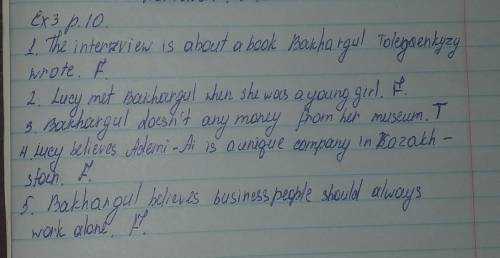 Ex3 p.10.
1. The interview is about a book Bakhargul Tolegaenkyzy
wrote. F.
2. Lucy met Bakhargul when she was a young girl. F.
3. Bakhargul doesn't any money from her museum. T
4. Lucy believes Ademi-Ai is a unique company in Kazakh-
stan. F.
5. Bakhargul believes businesspeople should always
work alone. F.